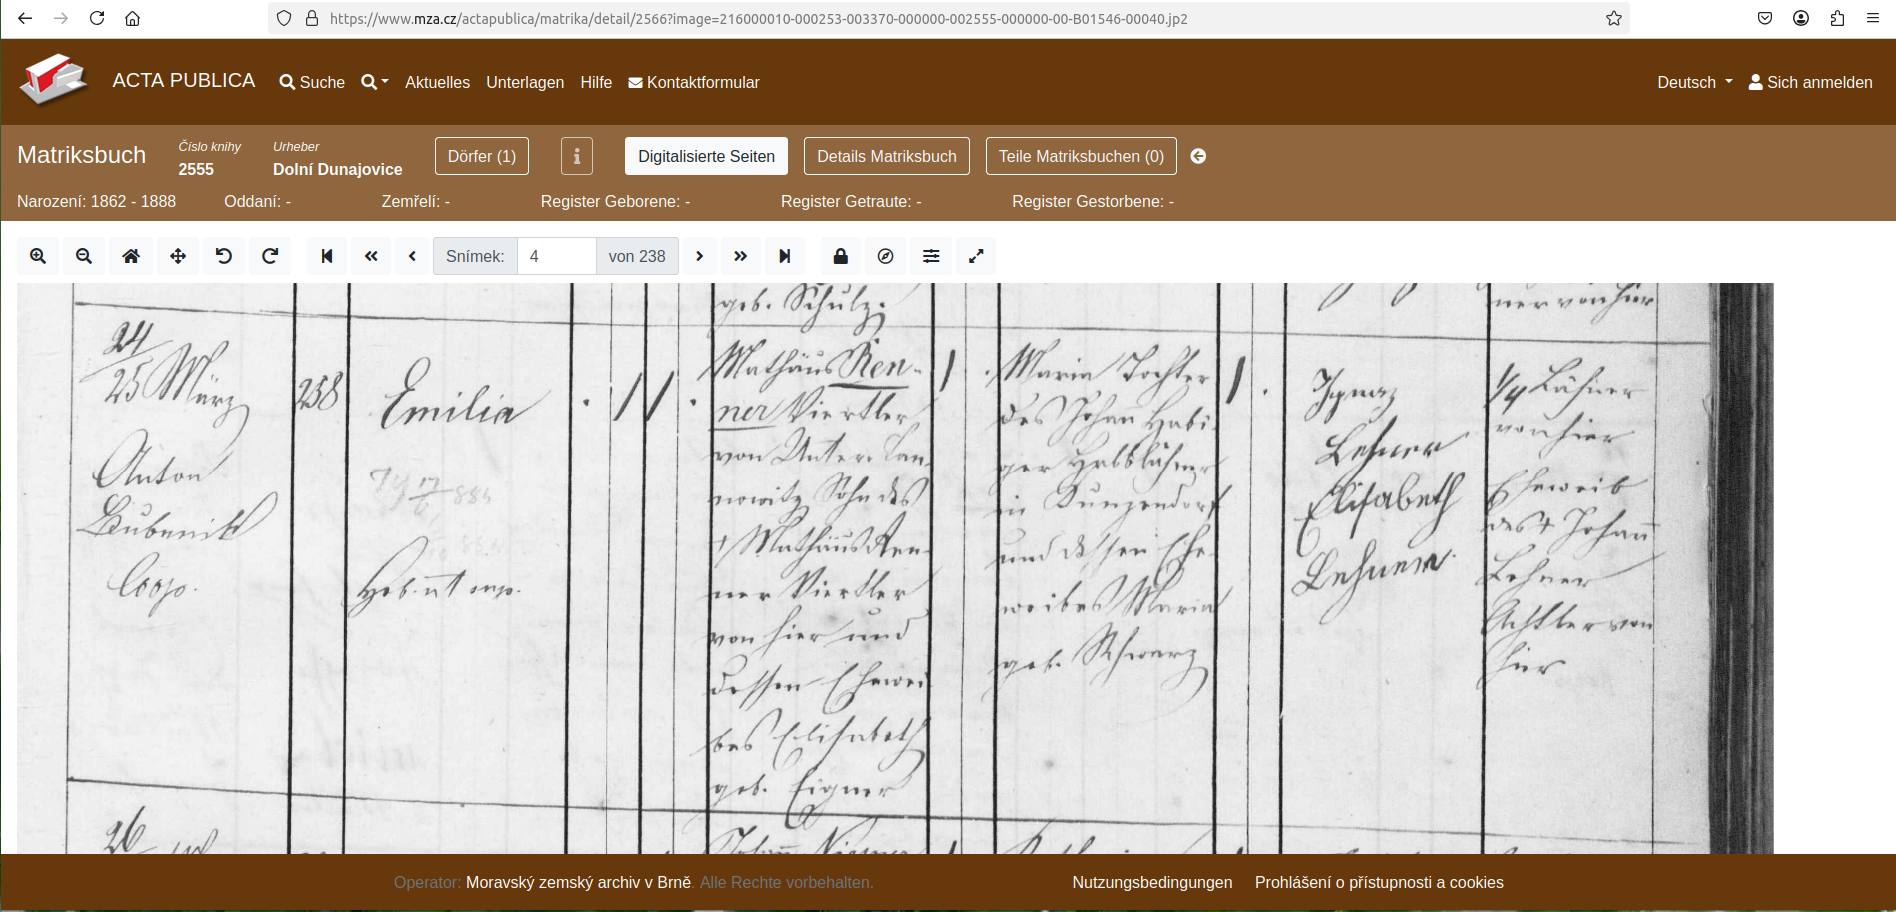 https://www.mza.cz/actapublica/matrika/detail/2566?image=216000010-000253-003370-000000-002555-000000-00-B01546-00040.jp2
ACTA PUBLICA
Suche
Aktuelles
Unterlagen
Hilfe
Kontaktformular
Deutsch
Sich anmelden
Matriksbuch
Číslo knihy
2555
Urheber
Dolní Dunajovice
Dörfer (1)
Digitalisierte Seiten
Details Matriksbuch
Teile Matriksbuchen (0)
Narození: 1862 - 1888
Oddaní: -
Zemřelí: -
Register Geborene: -
Register Getraute: -
Register Gestorbene: -
Snímek:
4
von 238
geb. Schulz.
ner von hier
24
25 März
Anton
Coop.
258
Emilia
Heb. ut supr.
Mathäus Ren-
ner Viertler
von Unter-Tan-
nowitz Sohn des
† Mathäus Ren-
ner Viertler
von hier und
dessen Ehewei-
bes Elisabeth
geb. Eigner
Maria Tochter
des Johan Habi-
ger Halblähner
in Kunzendorf
und dessen Ehe-
weibes Maria
geb. Schwarz
Ignaz
Lehner
Elisabeth
Lehner
1/4 Lähner
von hier
Eheweib
des † Johann
Lehner
Achtler von
hier
26
Operator: Moravský zemský archiv v Brně. Alle Rechte vorbehalten.
Nutzungsbedingungen
Prohlášení o přístupnosti a cookies